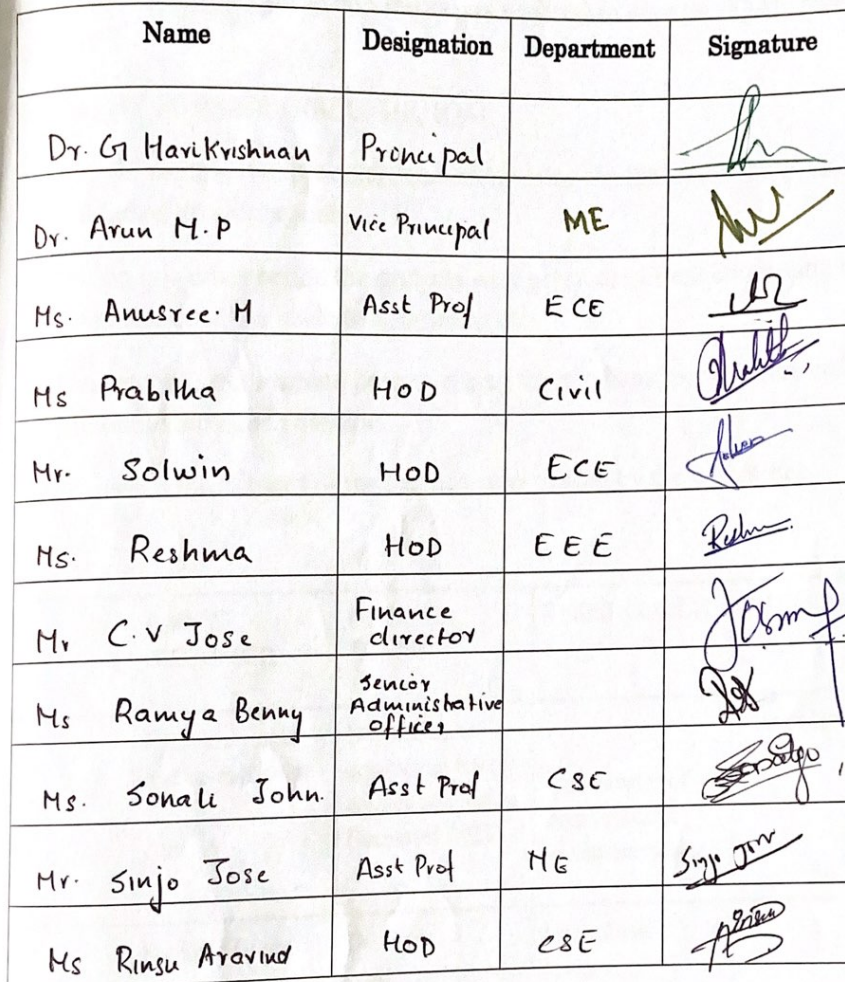 Name Designation Department Signature
Dr. G Harikrishnan Principal
Dr. Arun M.P Vice Principal ME
Ms. Anusree. M Asst Prof ECE
Ms Prabitha HOD Civil
Mr. Solwin HOD ECE
Ms. Reshma HOD EEE
Mr C.V Jose Finance
director
Ms Ramya Benny Senior
Administrative
officer
Ms. Sonali John. Asst Prof CSE
Mr. Sinjo Jose Asst Prof ME Sinjo Jose
Ms Rinsu Aravind HOD CSE